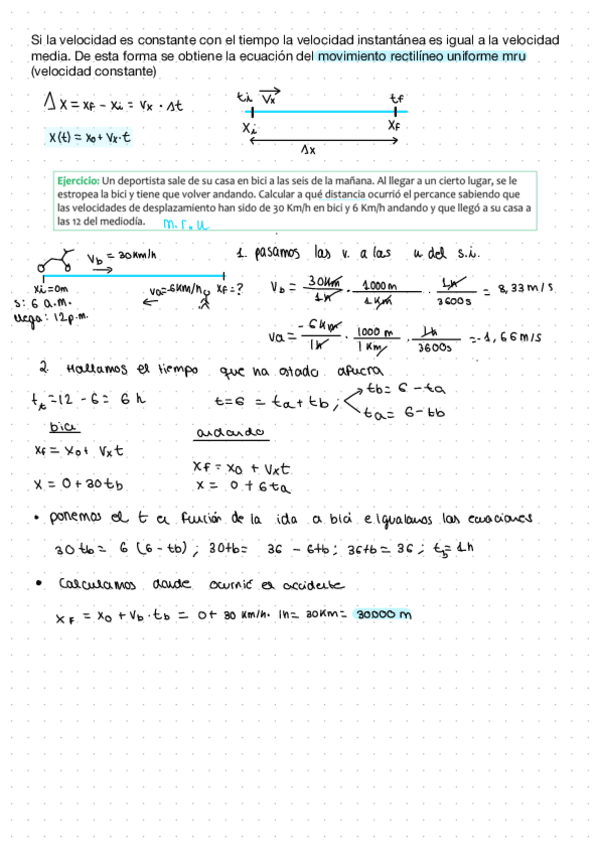 Si la velocidad es constante con el tiempo la velocidad instantánea es igual a la velocidad
media. De esta forma se obtiene la ecuación del movimiento rectilíneo uniforme mru
(velocidad constante)
Δx = xF - xi = Vx · Δt
ti Vx tf
xi xF
Δx
x(t) = x0 + Vx·t
Ejercicio: Un deportista sale de su casa en bici a las seis de la mañana. Al llegar a un cierto lugar, se le
estropea la bici y tiene que volver andando. Calcular a qué distancia ocurrió el percance sabiendo que
las velocidades de desplazamiento han sido de 30 Km/h en bici y 6 Km/h andando y que llegó a su casa a
las 12 del mediodía. m.r.u
Vb = 30Km/h
1. pasamos las v. a las u del s.i.
xi = 0m va=-6Km/h xF = ?
s: 6 a.m.
llega: 12p.m.
Vb = 30Km/1h · 1000m/1Km · 1h/3600s = 8,33 m/s
Va = -6Km/1h · 1000m/1Km · 1h/3600s = -1,66 m/s
2. Hallamos el tiempo que ha estado afuera
tt = 12 - 6 = 6 h
t=6 = ta + tb ; tb = 6 - ta
ta = 6 - tb
bici
andando
xF = x0 + Vxt
xF = x0 + Vxt
x = 0 + 30tb
x = 0 + 6ta
• ponemos el t a función de la ida a bici e igualamos las ecuaciones
30tb = 6 (6 - tb) ; 30tb = 36 - 6tb ; 36tb = 36 ; tb = 1h
• Calculamos donde ocurrió el accidente
xF = x0 + Vb · tb = 0 + 30 Km/h · 1h = 30Km = 30000 m